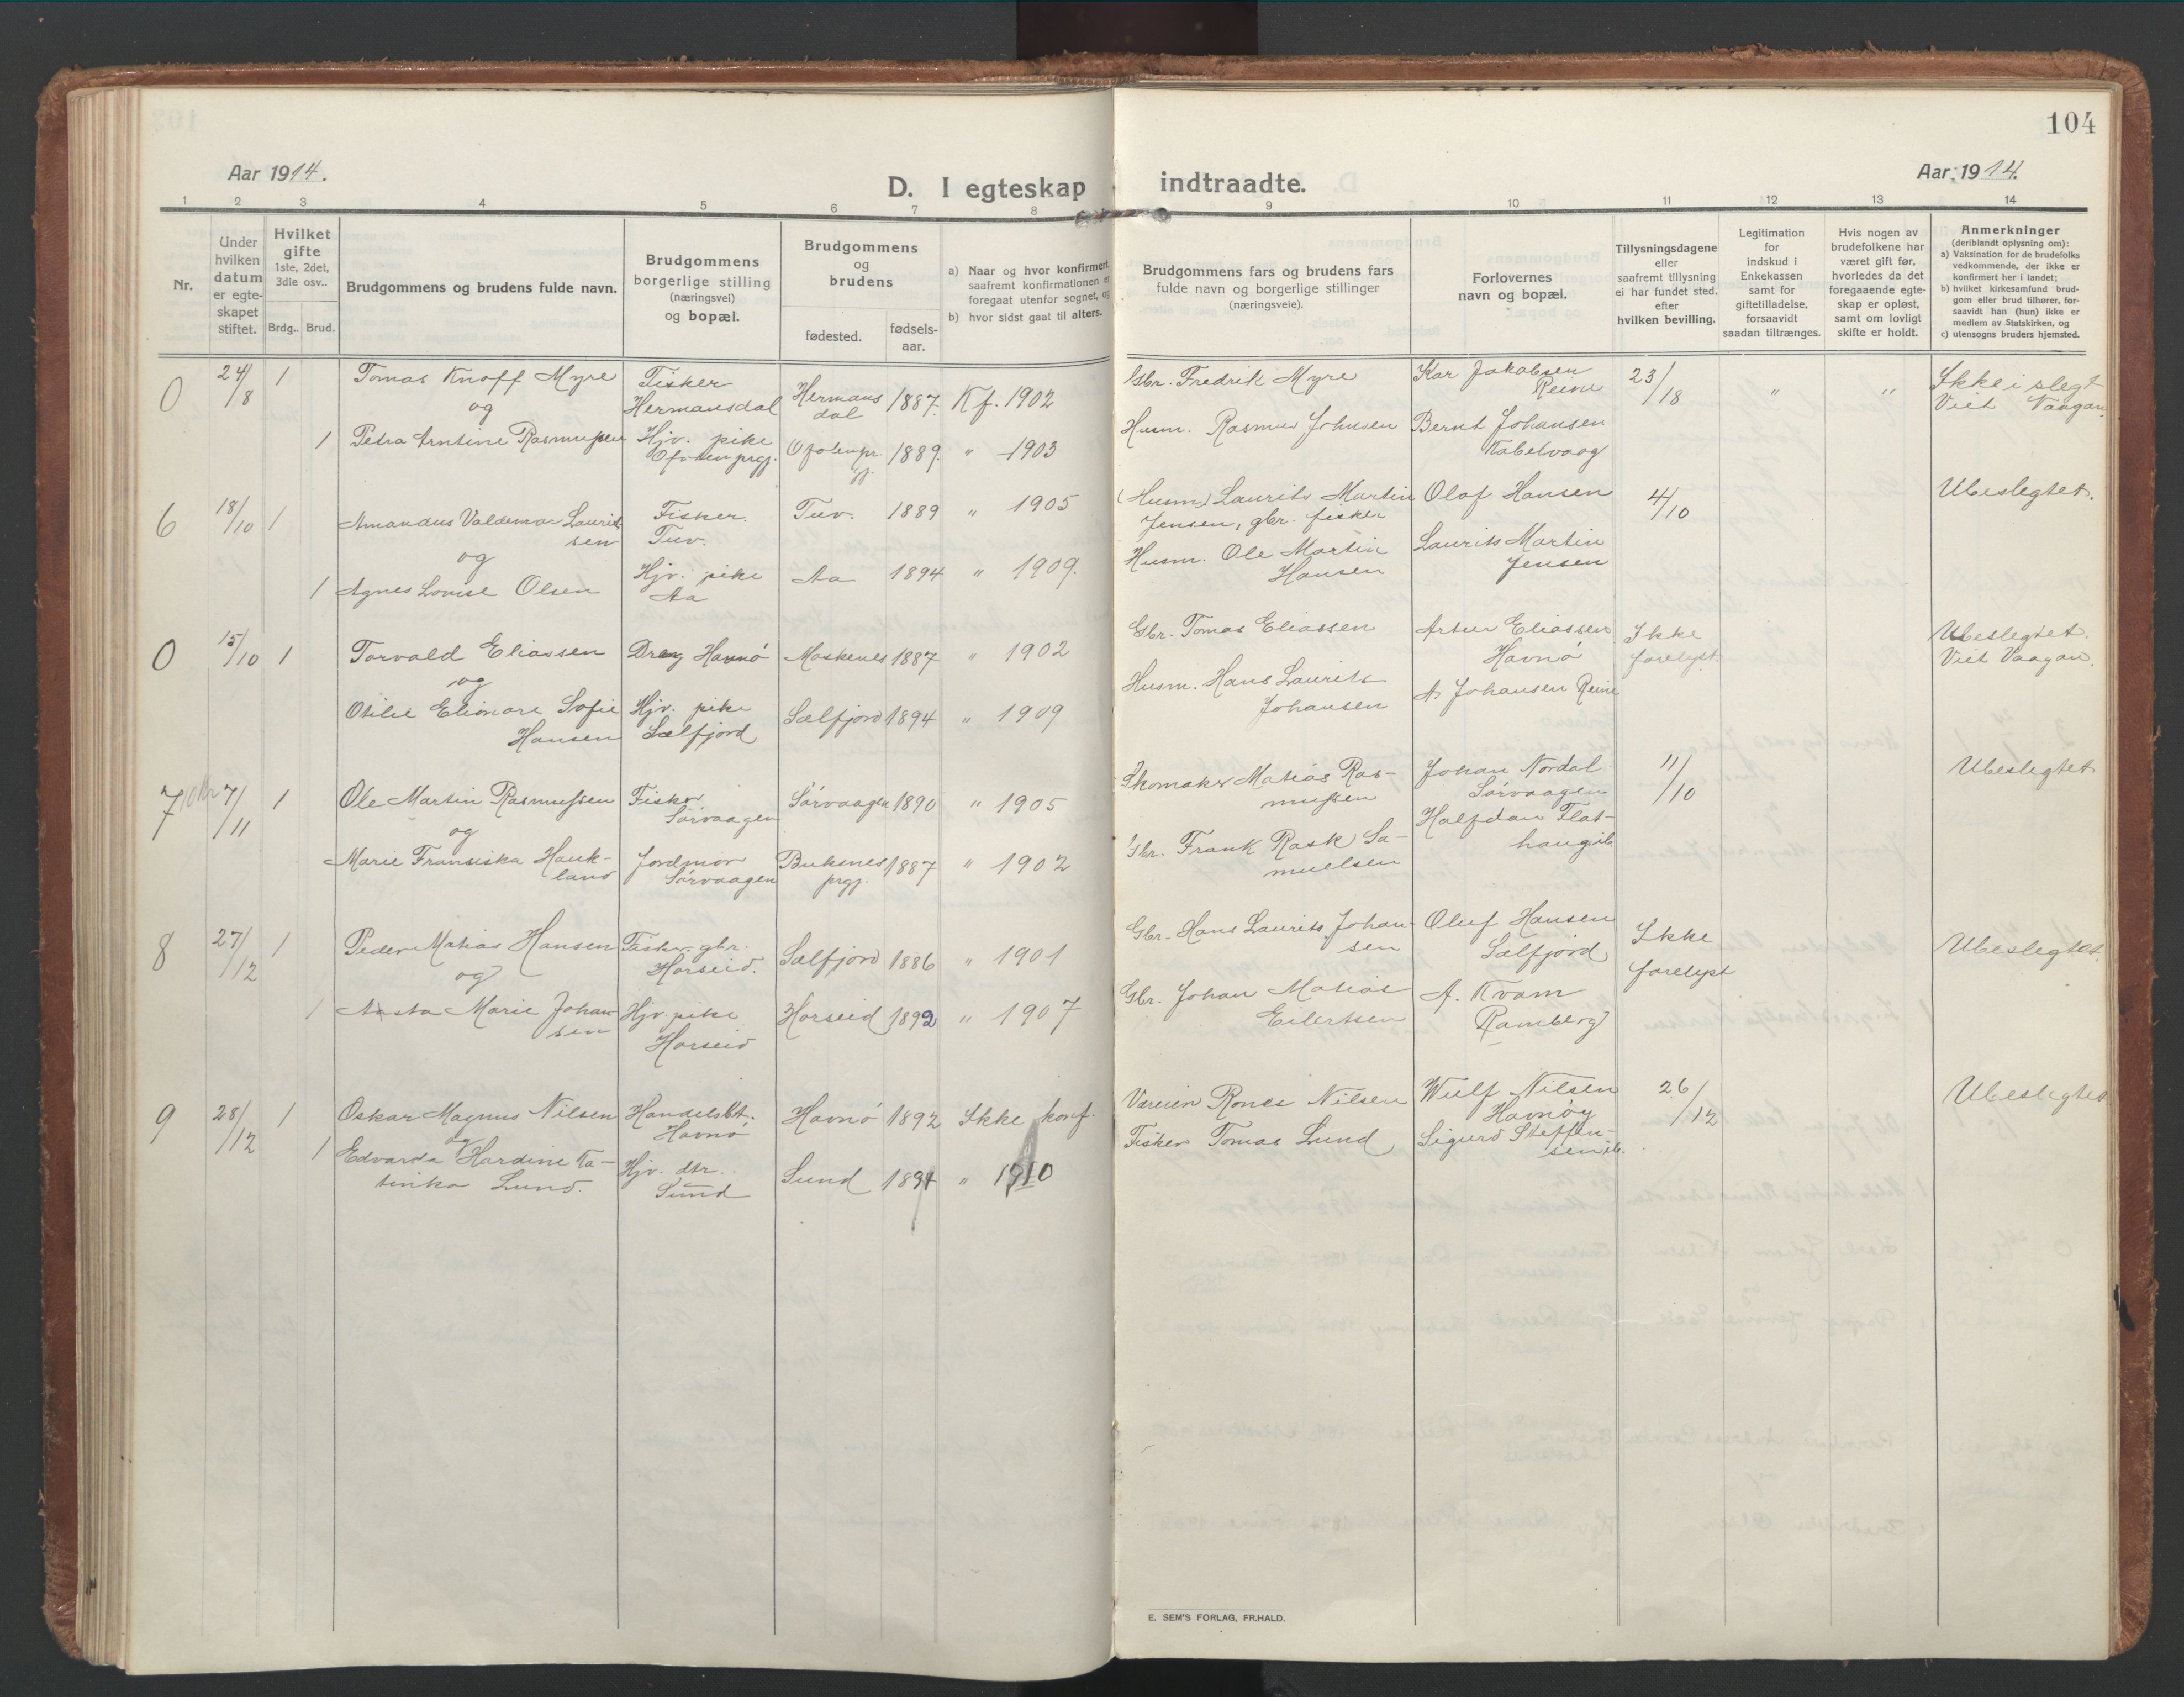 104
Aar 1914.
D. I egteskap indtraadte.
Aar 1914.
1 2 3 4 5 6 7 8 9 10 11 12 13 14
Nr.
Under
hvilken
datum
er egte-
skapet
stiftet.
Hvilket
gifte
1ste, 2det,
3die osv..
Brdg.. Brud.
Brudgommens og brudens fulde navn.
Brudgommens
borgerlige stilling
(næringsvei)
og bopæl.
Brudgommens
og
brudens
fødested.
fødsels-
aar.
a) Naar og hvor konfirmert,
saafremt konfirmationen er
foregaat utenfor sognet, og
b) hvor sidst gaat til alters.
Brudgommens fars og brudens fars
fulde navn og borgerlige stillinger
(næringsveie).
Forlovernes
navn og bopæl.
Tillysningsdagene
eller
saafremt tillysning
ei har fundet sted,
efter
hvilken bevilling.
Legitimation
for
indskud i
Enkekassen
samt for
giftetilladelse,
forsaavidt
saadan tiltrænges.
Hvis nogen av
brudefolkene har
været gift før,
hvorledes da det
foregaaende egte-
skap er opløst,
samt om lovligt
skifte er holdt.
Anmerkninger
(deriblandt oplysning om):
a) Vaksination for de brudefolks
vedkommende, der ikke er
konfirmert her i landet;
b) hvilket kirkesamfund brud-
gom eller brud tilhører, for-
saavidt han (hun) ikke er
medlem av Statskirken, og
c) utensogns bruders hjemsted.
0 24/8 1 Tomas Knoff Myre
og
1 Petra Arntine Rasmussen
Fisker
Hermansdal
Hjv. pike
Ofoten prgj.
Hermans
dal 1887. Kf. 1902
Ofoten pr.
gj. 1889. " 1903
Gbr. Fredrik Myre
Husm. Rasmus Johnsen
Kar Jakobsen
Reine
Bernt Johansen
Kabelvaag
23/18 " "
Ikke i slegt
Viet Vaagan.
6 18/10 1 Amandus Valdemar Laurit
sen
og
1 Agnes Lovise Olsen
Fisker.
Tuv.
Hjv. pike
Aa
Tuv. 1889 " 1905
Aa 1894 " 1909.
(Husm) Laurits Martin
Jensen, gbr. fisker
Husm. Ole Martin
Hansen
Olaf Hansen
Laurits Martin
Jensen
4/10
Ubeslegtet.
0 15/10 1 Torvald Eliassen
og
Otilie Elionore Sofie
Hansen
Dreng Havnø
Hjv. pike
Sælfjord
Moskenes 1887 " 1902
Sælfjord 1894 " 1909
Gbr. Tomas Eliassen
Husm. Hans Laurits
Johansen
Artur Eliassen
Havnø
A. Johansen Reine
Ikke
forelyst
Ubeslegtet.
Viet Vaagan.
7 7/11 1 Ole Martin Rasmussen
og
Marie Fransiska Hauk-
land
Fisker
Sørvaagen
Jordmor
Sørvaagen
Sørvaagen 1890 " 1905
Buksnes
prgj. 1887 " 1902
Skomaker Matias Ras-
mussen
Gbr. Frank Rask Sa-
muelsen
Johan Nordal
Sørvaagen
Halfdan Flat-
haug ib.
11/10
Ubeslegtet
8 27/12 1 Peder Matias Hansen
og
1 Aasta Marie Johan-
sen
Fisker gbr.
Horseid.
Hjv. pike
Horseid
Sælfjord 1886 " 1901
Horseid 1892 " 1907
Gbr. Hans Laurits Johan-
sen
Gbr. Johan Matias
Eilertsen
Oluf Hansen
Sælfjord
A. Kvam
Ramberg
Ikke
forelyst
Ubeslegtet.
9 28/12 1 Oskar Magnus Nilsen
og
1 Edvarda Hardine Ka-
tinka Lund.
Handelsbt.
Havnø
Hjv. dtr.
Sund
Havnø 1892 Ikke konf.
Sund 1894 " 1910
Væreier Rones Nilsen
Fisker Tomas Lund
Wulf Nilsen
Havnøy
Sigurd Steffen-
sen ib.
26/12
Ubeslegtet
E. SEM'S FORLAG, FR.HALD.